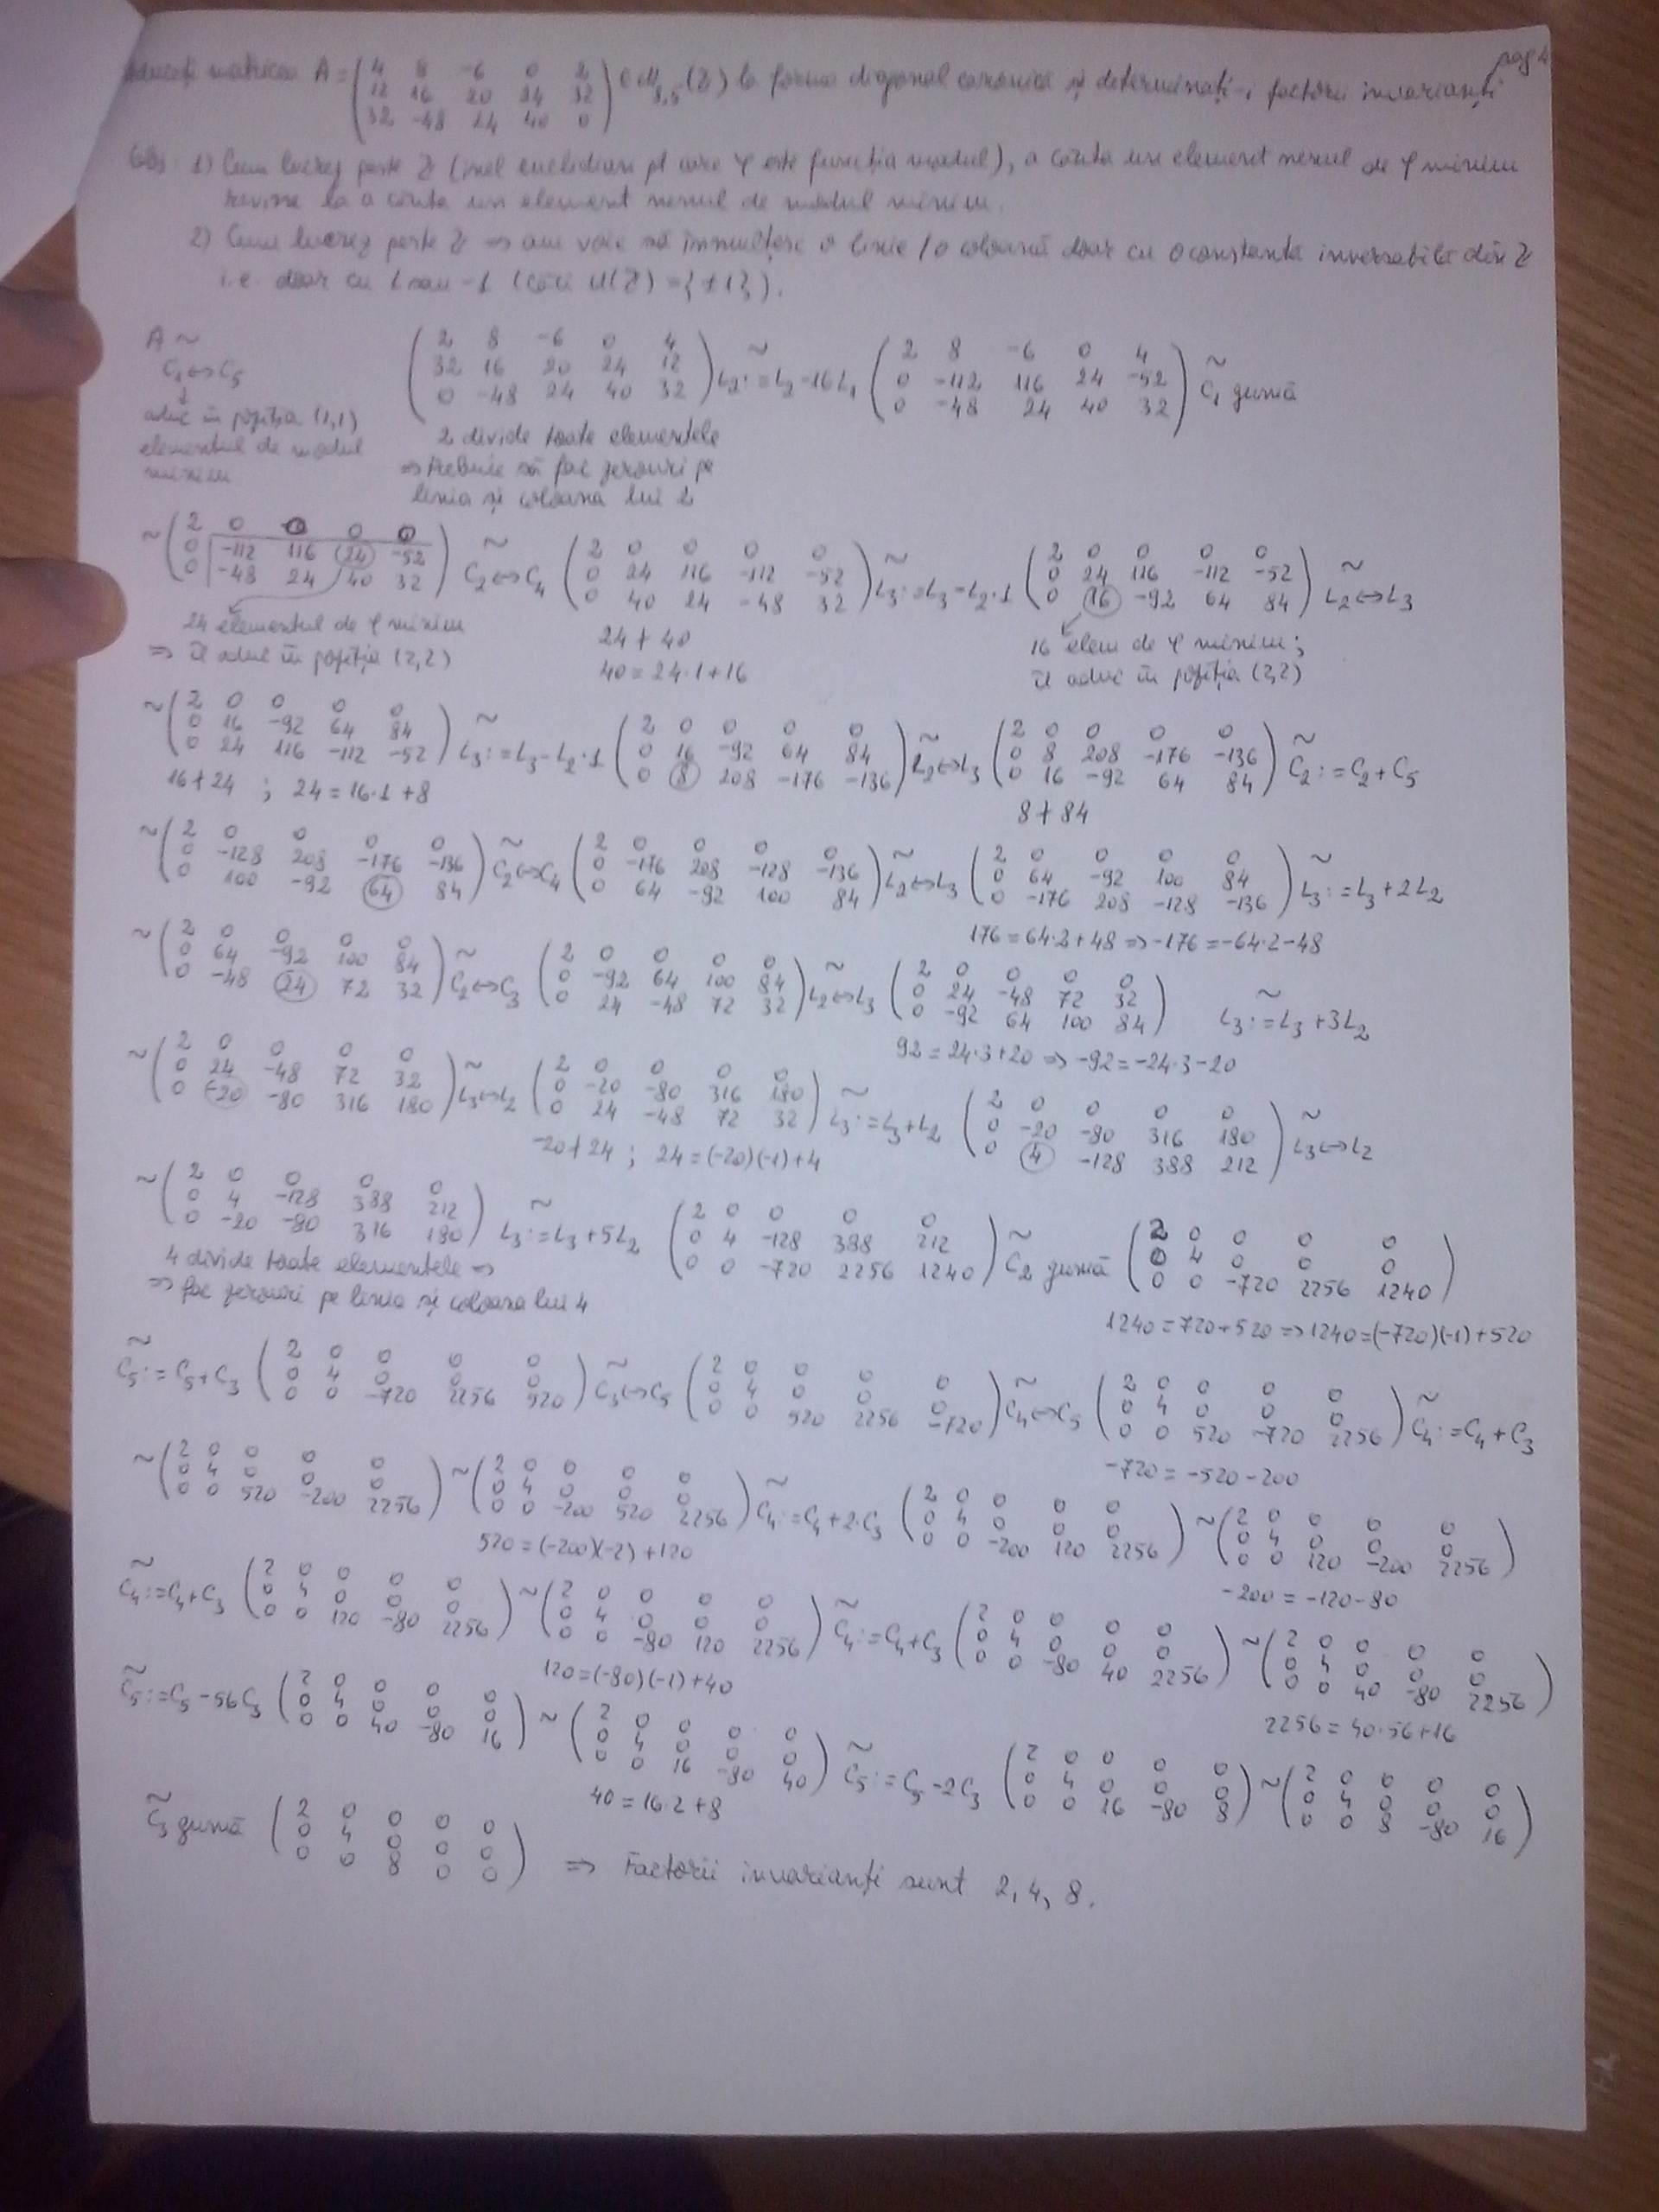 pag 4
Aduceți matricea A = ( 4 8 -6 0 2 ; 12 16 20 24 32 ; 32 -48 24 40 0 ) ∈ M3,5(Z) la forma diagonal canonică și determinați-i factorii invarianți
Obs: 1) Cum lucrez peste Z (inel euclidian pt care φ este funcția modul), a căuta un element nenul de φ minim
revine la a căuta un element nenul de modul minim.
2) Cum lucrez peste Z => am voie să înmulțesc o linie / o coloană doar cu o constantă inversabilă din Z
i.e. doar cu 1 sau -1 (căci U(Z) = {±1}).
A ~ C1<->C5 ( 2 8 -6 0 4 ; 32 16 20 24 12 ; 0 -48 24 40 32 ) ~ L2:=L2-16L1 ( 2 8 -6 0 4 ; 0 -112 116 24 -52 ; 0 -48 24 40 32 ) ~ C1 gumă
aduc în poziția (1,1)
elementul de modul
minim
2 divide toate elementele
=> trebuie să fac zerouri pe
linia și coloana lui 2
~ ( 2 0 0 0 0 ; 0 -112 116 24 -52 ; 0 -48 24 40 32 ) ~ C2<->C4 ( 2 0 0 0 0 ; 0 24 116 -112 -52 ; 0 40 24 -48 32 ) ~ L3:=L3-L2·1 ( 2 0 0 0 0 ; 0 24 116 -112 -52 ; 0 16 -92 64 84 ) ~ L2<->L3
24 elementul de φ minim
=> îl aduc în poziția (2,2)
24 ∤ 40
40 = 24·1+16
16 elem de φ minim;
îl aduc în poziția (2,2)
~ ( 2 0 0 0 0 ; 0 16 -92 64 84 ; 0 24 116 -112 -52 ) ~ L3:=L3-L2·1 ( 2 0 0 0 0 ; 0 16 -92 64 84 ; 0 8 208 -176 -136 ) ~ L2<->L3 ( 2 0 0 0 0 ; 0 8 208 -176 -136 ; 0 16 -92 64 84 ) ~ C2:=C2+C5
16 ∤ 24 ; 24 = 16·1+8
8 ∤ 84
~ ( 2 0 0 0 0 ; 0 -128 208 -176 -136 ; 0 100 -92 64 84 ) ~ C2<->C4 ( 2 0 0 0 0 ; 0 -176 208 -128 -136 ; 0 64 -92 100 84 ) ~ L2<->L3 ( 2 0 0 0 0 ; 0 64 -92 100 84 ; 0 -176 208 -128 -136 ) ~ L3:=L3+2L2
176 = 64·2+48 => -176 = -64·2-48
~ ( 2 0 0 0 0 ; 0 64 -92 100 84 ; 0 -48 24 72 32 ) ~ C2<->C3 ( 2 0 0 0 0 ; 0 -92 64 100 84 ; 0 24 -48 72 32 ) ~ L2<->L3 ( 2 0 0 0 0 ; 0 24 -48 72 32 ; 0 -92 64 100 84 ) ~ L3:=L3+3L2
92 = 24·3+20 => -92 = -24·3-20
~ ( 2 0 0 0 0 ; 0 24 -48 72 32 ; 0 -20 -80 316 180 ) ~ L3<->L2 ( 2 0 0 0 0 ; 0 -20 -80 316 180 ; 0 24 -48 72 32 ) ~ L3:=L3+L2 ( 2 0 0 0 0 ; 0 -20 -80 316 180 ; 0 4 -128 388 212 ) ~ L3<->L2
-20 ∤ 24 ; 24 = (-20)(-1)+4
~ ( 2 0 0 0 0 ; 0 4 -128 388 212 ; 0 -20 -80 316 180 ) ~ L3:=L3+5L2 ( 2 0 0 0 0 ; 0 4 -128 388 212 ; 0 0 -720 2256 1240 ) ~ C2 gumă ( 2 0 0 0 0 ; 0 4 0 0 0 ; 0 0 -720 2256 1240 )
4 divide toate elementele =>
=> fac zerouri pe linia și coloana lui 4
1240 = 720+520 => 1240 = (-720)(-1)+520
~ C5:=C5+C3 ( 2 0 0 0 0 ; 0 4 0 0 0 ; 0 0 -720 2256 520 ) ~ C3<->C5 ( 2 0 0 0 0 ; 0 4 0 0 0 ; 0 0 520 2256 -720 ) ~ C4<->C5 ( 2 0 0 0 0 ; 0 4 0 0 0 ; 0 0 520 -720 2256 ) ~ C4:=C4+C3
-720 = -520-200
~ ( 2 0 0 0 0 ; 0 4 0 0 0 ; 0 0 520 -200 2256 ) ~ ( 2 0 0 0 0 ; 0 4 0 0 0 ; 0 0 -200 520 2256 ) ~ C4:=C4+2·C3 ( 2 0 0 0 0 ; 0 4 0 0 0 ; 0 0 -200 120 2256 ) ~ ( 2 0 0 0 0 ; 0 4 0 0 0 ; 0 0 120 -200 2256 )
520 = (-200)(-2)+120
-200 = -120-80
~ C4:=C4+C3 ( 2 0 0 0 0 ; 0 4 0 0 0 ; 0 0 120 -80 2256 ) ~ ( 2 0 0 0 0 ; 0 4 0 0 0 ; 0 0 -80 120 2256 ) ~ C4:=C4+C3 ( 2 0 0 0 0 ; 0 4 0 0 0 ; 0 0 -80 40 2256 ) ~ ( 2 0 0 0 0 ; 0 4 0 0 0 ; 0 0 40 -80 2256 )
120 = (-80)(-1)+40
2256 = 40·56+16
~ C5:=C5-56C3 ( 2 0 0 0 0 ; 0 4 0 0 0 ; 0 0 40 -80 16 ) ~ ( 2 0 0 0 0 ; 0 4 0 0 0 ; 0 0 16 -80 40 ) ~ C5:=C5-2C3 ( 2 0 0 0 0 ; 0 4 0 0 0 ; 0 0 16 -80 8 ) ~ ( 2 0 0 0 0 ; 0 4 0 0 0 ; 0 0 8 -80 16 )
40 = 16·2+8
~ C3 gumă ( 2 0 0 0 0 ; 0 4 0 0 0 ; 0 0 8 0 0 ) => Factorii invarianți sunt 2, 4, 8.